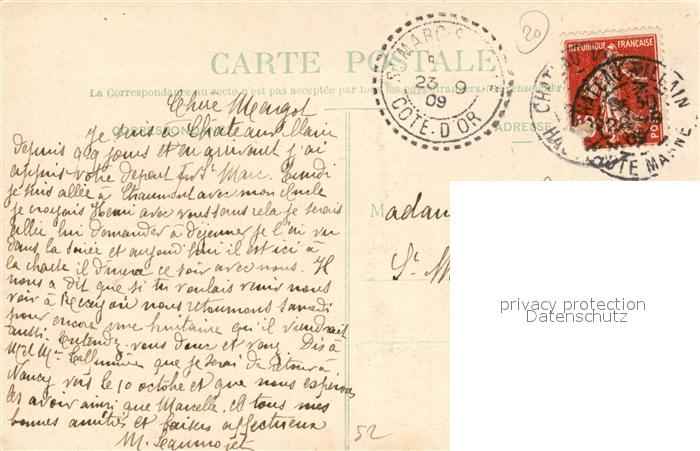 CARTE POSTALE
La Correspondance au recto n'est pas acceptée par tous les pays étrangers. (Se renseigner
CORRESPONDANCE
ADRESSE
Chère Margot
Je suis à Chateauvillain
depuis qq jours et en arrivant j'ai
appris votre départ pour St. Marc. Lundi
je suis allée à Chaumont avec mon oncle
je croyais Henri avec vous sans cela je serais
allée lui demander à déjeuner je l'ai vu
dans la soirée et aujourd'hui il est ici à
la chasse il dînera ce soir avec nous. Il
nous a dit que si tu voulais venir nous
voir à Recey où nous retournons samedi
pour encore une huitaine qu'il viendrait
aussi. Entendez-vous donc et venez. Dis à
Mr et Mme que je serai de retour à
Nancy vers le 10 octobre et que nous espérons
les avoir ainsi que Marcelle. A tous mes
bonnes amitiés et baisers affectueux
M.
52
20
ST MARC-S-
23 9
09
COTE-D'OR
REPUBLIQUE FRANÇAISE
POSTES
CHATEAUVILLAIN
HAUTE MARNE
Madam
St. M
privacy protection
Datenschutz